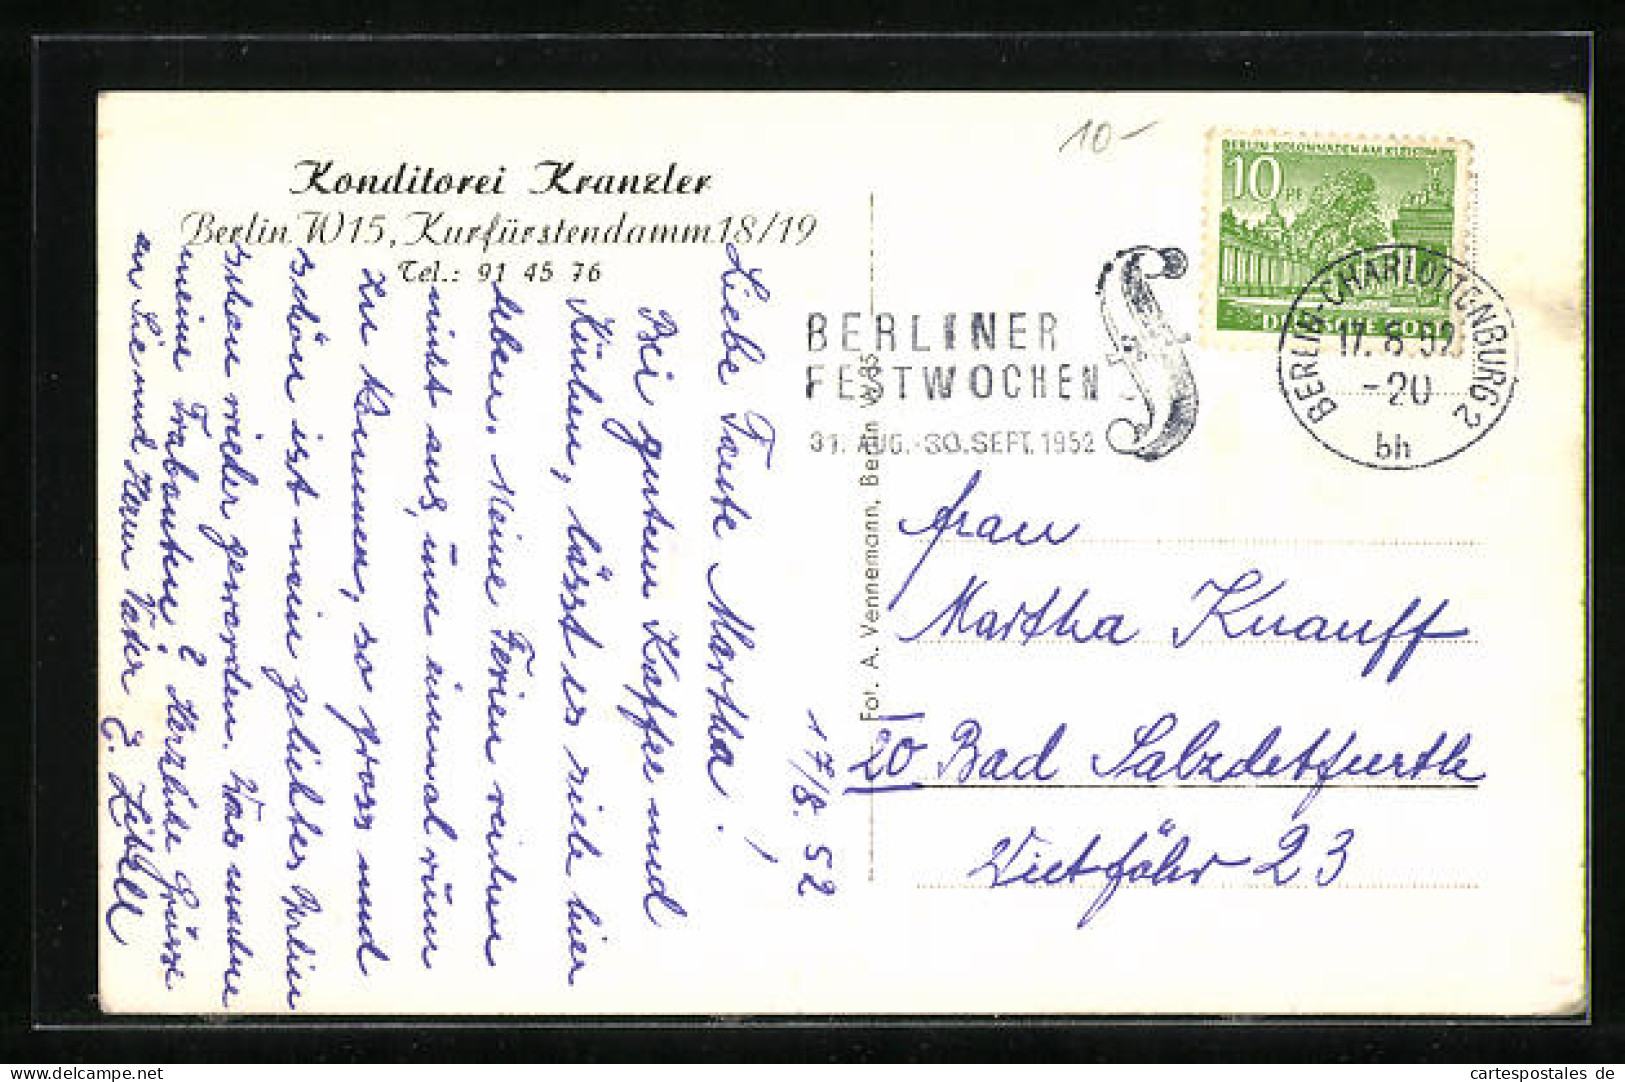 10-
Konditorei Kranzler
Berlin W15, Kurfürstendamm 18/19
Tel.: 91 45 76
17/8. 52
Liebe Tante Martha!
Bei gutem Kaffee und
Kuchen, lässt es sich hier
leben. Meine Ferien reichen
nicht aus, um einmal rum
zu kommen, so gross und
schön ist mein geliebtes Berlin
schon wieder geworden. Was machen
meine Trabanten? Herzliche Grüsse
an Sie und Herrn Vater E. Liball
Fot. A. Vennemann, Berlin W 35
BERLINER
FESTWOCHEN
31. AUG.-30. SEPT. 1952
BERLIN-KOLONNADEN AM KLEISTPARK
10 PF
DEUTSCHE POST
BERLIN-CHARLOTTENBURG 2
17.8.52
-20
bh
Frau
Martha Knauff
20 Bad Salzdetfurth
Wietföhr 23
cartespostales de